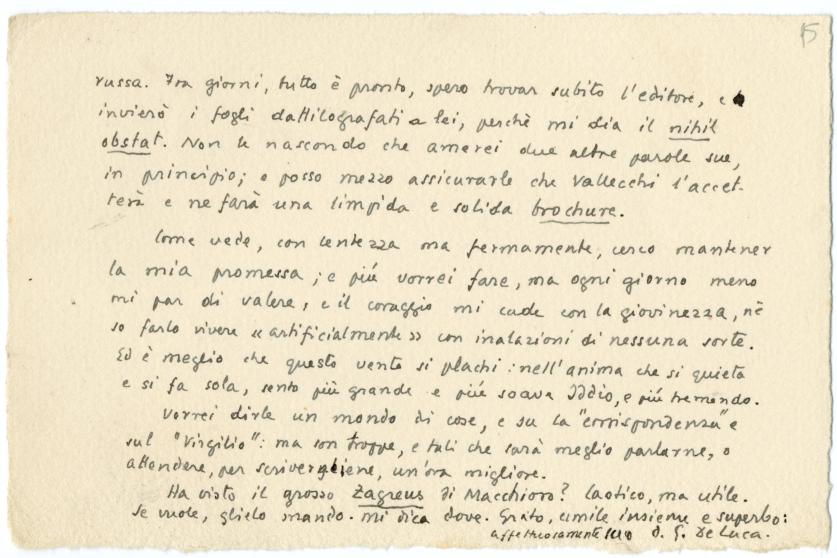 15
russa. Fra giorni, tutto è pronto, spero trovar subito l'editore, e
invierò i fogli dattilografati a lei, perchè mi dia il nihil
obstat. Non le nascondo che amerei due altre parole sue,
in principio; e posso mezzo assicurarle che Vallecchi l'accet-
terà e ne farà una limpida e solida brochure.
Come vede, con lentezza ma fermamente, cerco mantener
la mia promessa; e piú vorrei fare, ma ogni giorno meno
mi par di valere, e il coraggio mi cade con la giovinezza, nè
so farlo vivere «artificialmente» con inalazioni di nessuna sorte.
Ed è meglio che questo vento si plachi: nell'anima che si quieta
e si fa sola, sento piú grande e piú soave Iddio, e piú tremendo.
Vorrei dirle un mondo di cose, e su la "corrispondenza" e
sul "Virgilio": ma son troppe, e tali che sarà meglio parlarne, o
attendere, per scrivergliene, un'ora migliore.
Ha visto il grosso Zagreus di Macchioro? Caotico, ma utile.
Se vuole, glielo mando. Mi dica dove. Grato, umile insieme e superbo:
affettuosamente suo d. G. De Luca.